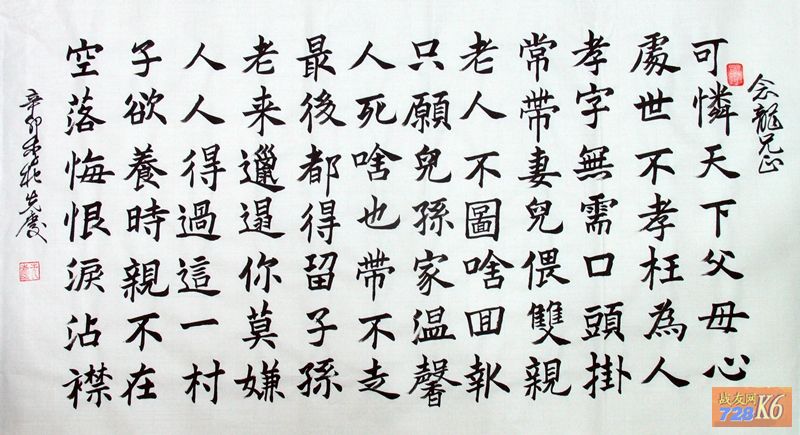 龍兄正
可憐天下父母心
處世不孝枉為人
孝字無需口頭掛
常帶妻兒偎雙親
老人不圖啥囬報
只願兒孫家温馨
人死啥也帶不走
最後都得留子孫
老来邋遢你莫嫌
人人得過這一村
子欲養時親不在
空落悔恨淚沾襟
辛卯
战友网
728 K6